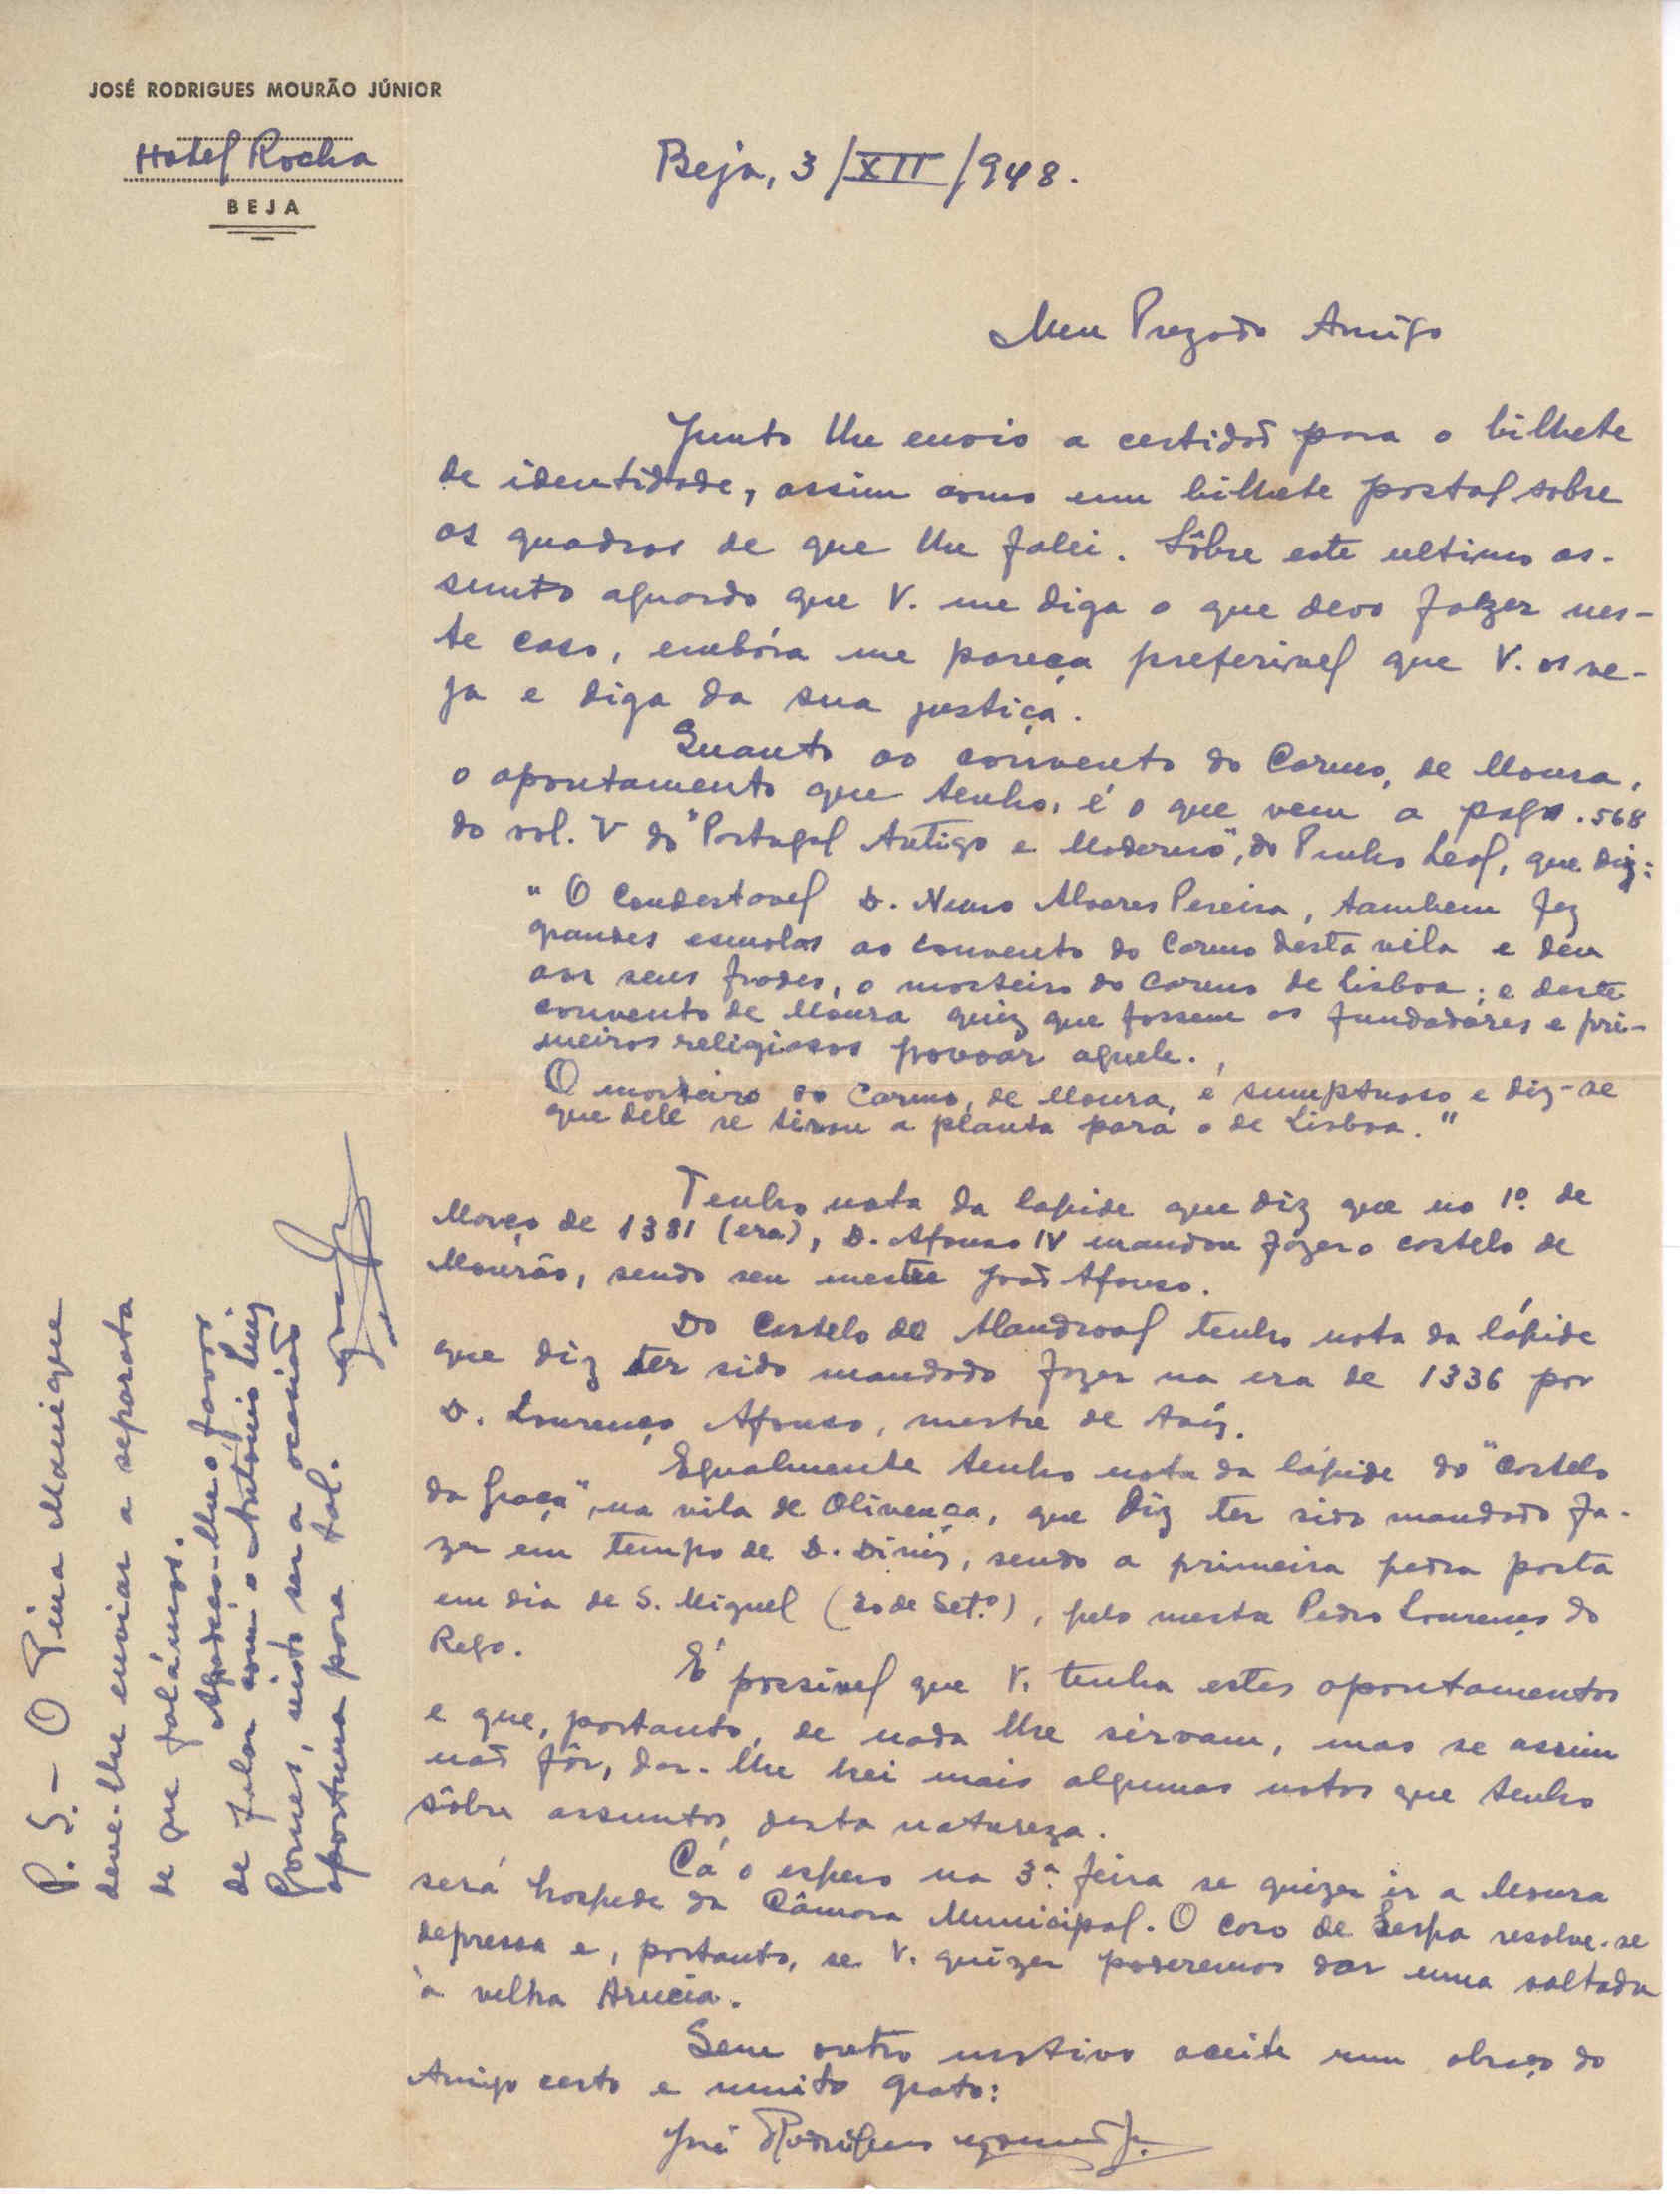 JOSÉ RODRIGUES MOURÃO JÚNIOR
Hotel Rocha
BEJA
Beja, 3/XII/948.
Meu Prezado Amigo
Junto lhe envio a certidão para o bilhete
de identidade, assim como um bilhete postal sobre
os quadros de que lhe falei. Sôbre este ultimo as-
sunto aguardo que V. me diga o que devo fazer nes-
te caso, embóra me pareça preferivel que V. os ve-
ja e diga da sua justiça.
Quanto ao convento do Carmo, de Moura,
o apontamento que tenho, é o que vem a pagª. 568
do vol. V do "Portugal Antigo e Moderno", do Pinho Leal, que diz:
" O Condestavel D. Nuno Alvares Pereira, tambem fez
grandes esmolas ao convento do Carmo desta vila e deu
aos seus frades, o mosteiro do Carmo de Lisboa; e deste
convento de Moura quiz que fossem os fundadores e pri-
meiros religiosos povoar aquele.
O mosteiro do Carmo, de Moura, é sumptuoso e diz-se
que dele se tirou a planta para o de Lisboa."
Tenho nota da lapide que diz que no 1º. de
Março de 1381 (era), D. Afonso IV mandou fazer o castelo de
Mourão, sendo seu mestre João Afonso.
Do Castelo de Alandroal tenho nota da lápide
que diz ter sido mandado fazer na era de 1336 por
D. Lourenço Afonso, mestre de Aviz.
Egualmente tenho nota da lápide do "Castelo
da Graça", na vila de Olivença, que diz ter sido mandado fa-
zer em tempo de D. Diniz, sendo a primeira pedra posta
em dia de S. Miguel (20 de Set.º), pelo mestre Pedro Lourenço do
Rego.
É possivel que V. tenha estes apontamentos
e que, portanto, de nada lhe sirvam, mas se assim
não fôr, dar-lhe hei mais algumas notas que tenho
sôbre assuntos desta natureza.
Cá o espero na 3ª. feira se quizer ir a Moura
será hospede da Câmara Municipal. O caso de Serpa resolve-se
depressa e, portanto, se V. quizer poderemos dar uma saltada
à velha Arucia.
Sem outro motivo aceite um abraço do
Amigo certo e muito grato:
José Rodrigues Mourão Jr.
P. S. - O Pina Manique
deve-lhe enviar a separata
de que falámos.
Agradeço-lhe o favor
de falar com o Antonio Luiz
Gomes, visto ser a ocasião
oportuna para tal.